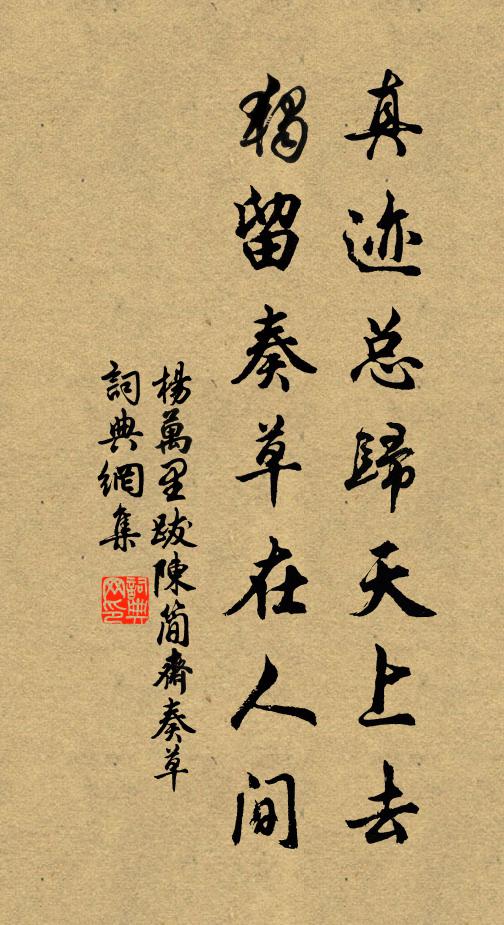 真迹总歸天上去
獨留奏草在人間
楊萬里跋陳簡齋奏草
詞典網集
詞典网印